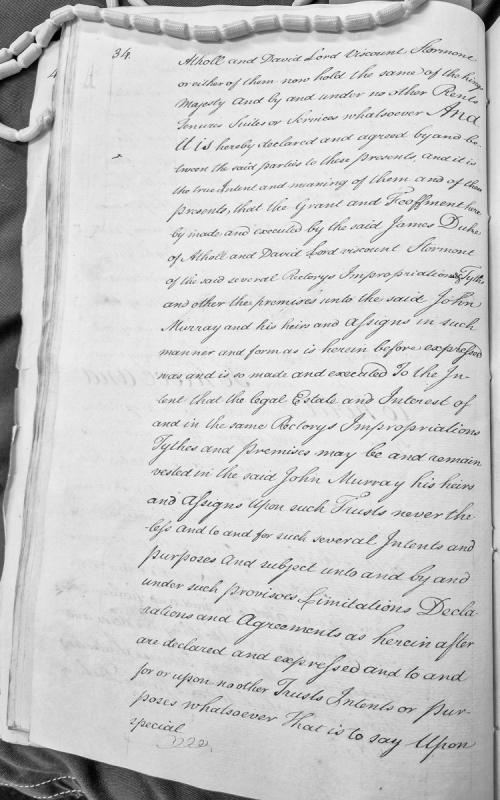 34.
Atholl and David Lord Viscount Stormont
or either of them now hold the same of the kings
Majesty and by and under no other Rents
Tenures Suites or Services whatsoever And
it is hereby declared and agreed by and be-
tween the said parties to these presents, and it is
the true Intent and meaning of them and of these
presents, that the Grant and Feoffment here
by made and executed by the said James Duke
of Atholl and David Lord viscount Stormont
of the said several Rectorys Impropriations & Tyths
and other the premises unto the said John
Murray and his heirs and assigns in such
manner and form as is herein before expressed
was and is so made and executed To the In-
tent that the legal Estate and Interest of
and in the same Rectorys Impropriations
Tythes and premises may be and remain
vested in the said John Murray his heirs
and assigns upon such Trusts never the
less and to and for such several Intents and
purposes and subject unto and by and
under such provisoes Limitations Decla
rations and Agreements as herein after
are declared and expressed and to and
for or upon no other Trusts Intents or pur-
poses whatsoever That is to say Upon
special